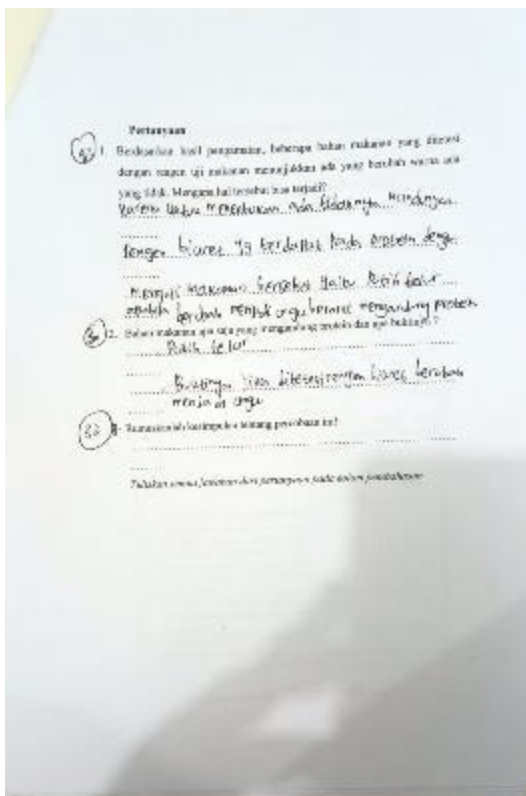 Pertanyaan
1. Berdasarkan hasil pengamatan, beberapa bahan makanan yang ditetesi
dengan reagen uji makanan menunjukkan ada yang berubah warna ada
yang tidak. Mengapa hal tersebut bisa terjadi?
Karena untuk menentukan ada tidaknya kandungan
reagen biuret yg terdapat pada protein
menguji makanan tersebut yaitu Putih telur
apabila berubah menjadi ungu berarti mengandung protein
2. Bahan makanan apa saja yang mengandung protein dan apa buktinya?
Putih telur
Buktinya bila ditetesi reagen biuret berubah
menjadi ungu
Rumuskanlah kesimpulan tentang percobaan ini!
Tuliskan semua jawaban dari pertanyaan pada kolom pembahasan